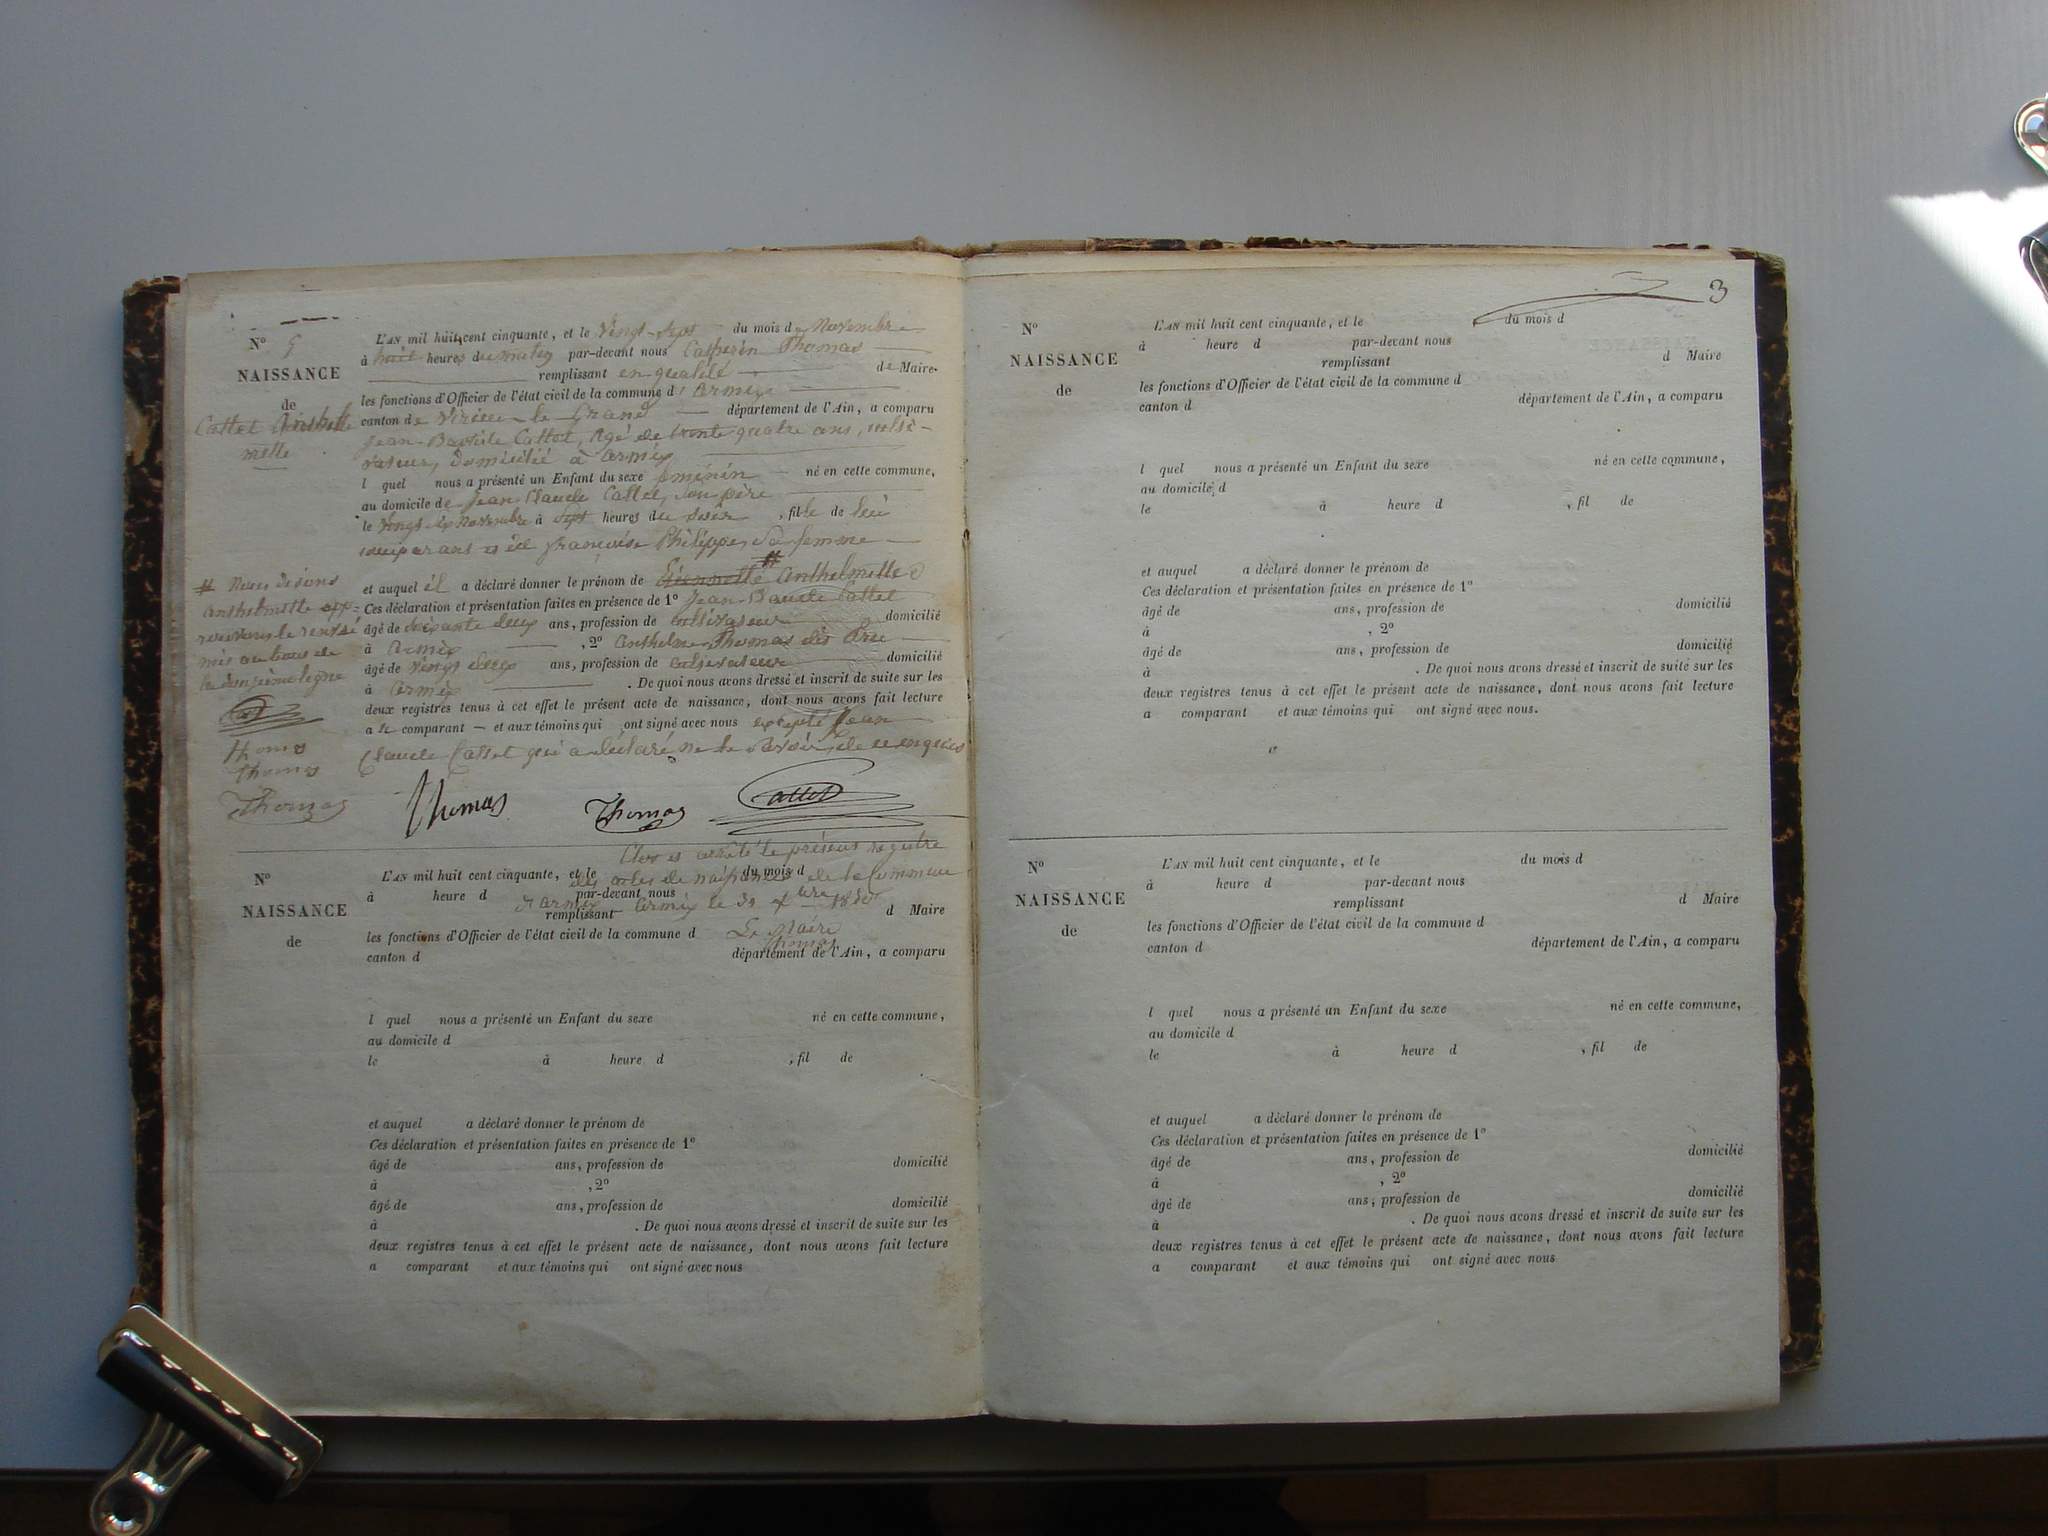 N° 9
NAISSANCE
de
Cattet Anthel
mette
L'AN mil huit cent cinquante, et le vingt-sept du mois de Novembre
à huit heures du matin par-devant nous Casperin Thomas
remplissant en qualité de Maire
les fonctions d'Officier de l'état civil de la commune d'armix
canton de Virieu-le-Grand département de l'Ain, a comparu
Jean-Baptiste Cattet, agé de trente quatre ans, culti-
vateur, domicilié à armix
l quel nous a présenté un Enfant du sexe féminin né en cette commune,
au domicile de Jean Claude Cattet, son père
le vingt six Novembre à sept heures du soir, fille de lui
comparant et de françoise Philippe, Sa femme
et auquel il a déclaré donner le prénom de # anthelmette
Ces déclaration et présentation faites en présence de 1° Jean-Claude Cattet
âgé de soixante deux ans, profession de cultivateur domicilié
à armix, 2° anthelme Thomas dit
âgé de vingt deux ans, profession de cultivateur domicilié
à armix. De quoi nous avons dressé et inscrit de suite sur les
deux registres tenus à cet effet le présent acte de naissance, dont nous avons fait lecture
a u comparant et aux témoins qui ont signé avec nous excepté Jean
Claude Cattet qui a déclaré ne le savoir, de ce enquis
# Nous disons
anthelmette app=
rouvons le renvoi
mis au bout de
la onzième ligne
Cattet
thomas
Thomas
Thomas
Thomas Thomas Cattet
Clos et arrêté le présent registre
des actes de naissances de la Commune
d'armix armix le 31 Xbre 1850
Le Maire
Thomas
N°
NAISSANCE
de
L'AN mil huit cent cinquante, et le du mois d
à heure d par-devant nous
remplissant d Maire
les fonctions d'Officier de l'état civil de la commune d
canton d département de l'Ain, a comparu
l quel nous a présenté un Enfant du sexe né en cette commune,
au domicile d
le à heure d , fil de
et auquel a déclaré donner le prénom de
Ces déclaration et présentation faites en présence de 1°
âgé de ans, profession de domicilié
à , 2°
âgé de ans, profession de domicilié
à . De quoi nous avons dressé et inscrit de suite sur les
deux registres tenus à cet effet le présent acte de naissance, dont nous avons fait lecture
a comparant et aux témoins qui ont signé avec nous
3
N°
NAISSANCE
de
L'AN mil huit cent cinquante, et le du mois d
à heure d par-devant nous
remplissant d Maire
les fonctions d'Officier de l'état civil de la commune d
canton d département de l'Ain, a comparu
l quel nous a présenté un Enfant du sexe né en cette commune,
au domicile d
le à heure d , fil de
et auquel a déclaré donner le prénom de
Ces déclaration et présentation faites en présence de 1°
âgé de ans, profession de domicilié
à , 2°
âgé de ans, profession de domicilié
à . De quoi nous avons dressé et inscrit de suite sur les
deux registres tenus à cet effet le présent acte de naissance, dont nous avons fait lecture
a comparant et aux témoins qui ont signé avec nous.
N°
NAISSANCE
de
L'AN mil huit cent cinquante, et le du mois d
à heure d par-devant nous
remplissant d Maire
les fonctions d'Officier de l'état civil de la commune d
canton d département de l'Ain, a comparu
l quel nous a présenté un Enfant du sexe né en cette commune,
au domicile d
le à heure d , fil de
et auquel a déclaré donner le prénom de
Ces déclaration et présentation faites en présence de 1°
âgé de ans, profession de domicilié
à , 2°
âgé de ans, profession de domicilié
à . De quoi nous avons dressé et inscrit de suite sur les
deux registres tenus à cet effet le présent acte de naissance, dont nous avons fait lecture
a comparant et aux témoins qui ont signé avec nous